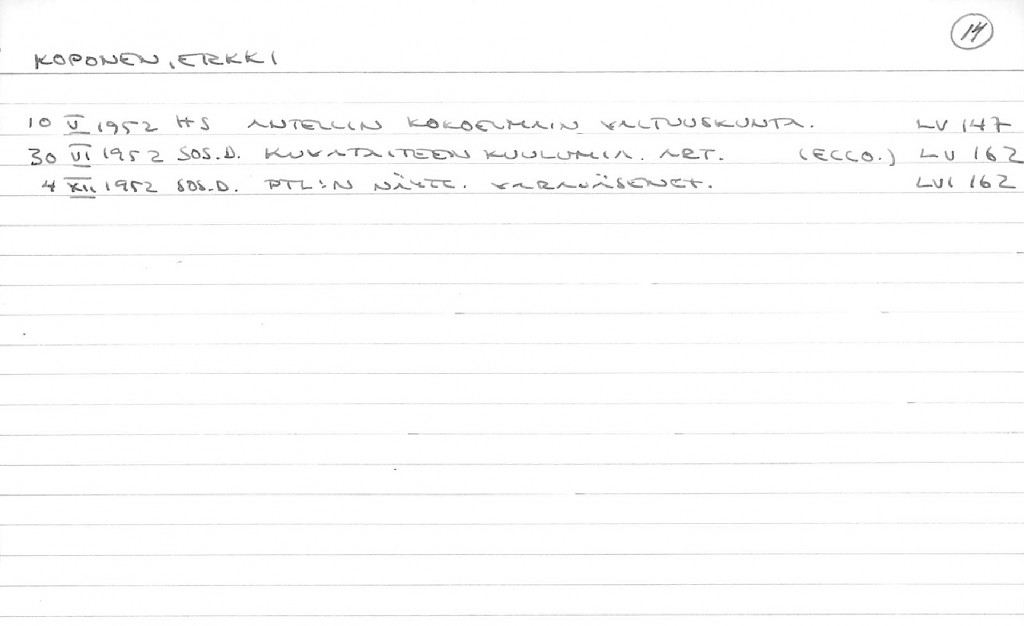 14
KOPONEN, ERKKI
10 V 1952 HS ANTELLIN KOKOELMAIN VALTUUSKUNTA. LV 147
30 VI 1952 SOS.D. KUVATAITEEN KUULUMIA. ART. (ECCO.) LV 162
4 XII 1952 SOS.D. PTL:N NÄYTT. VARAJÄSENET. LVI 162